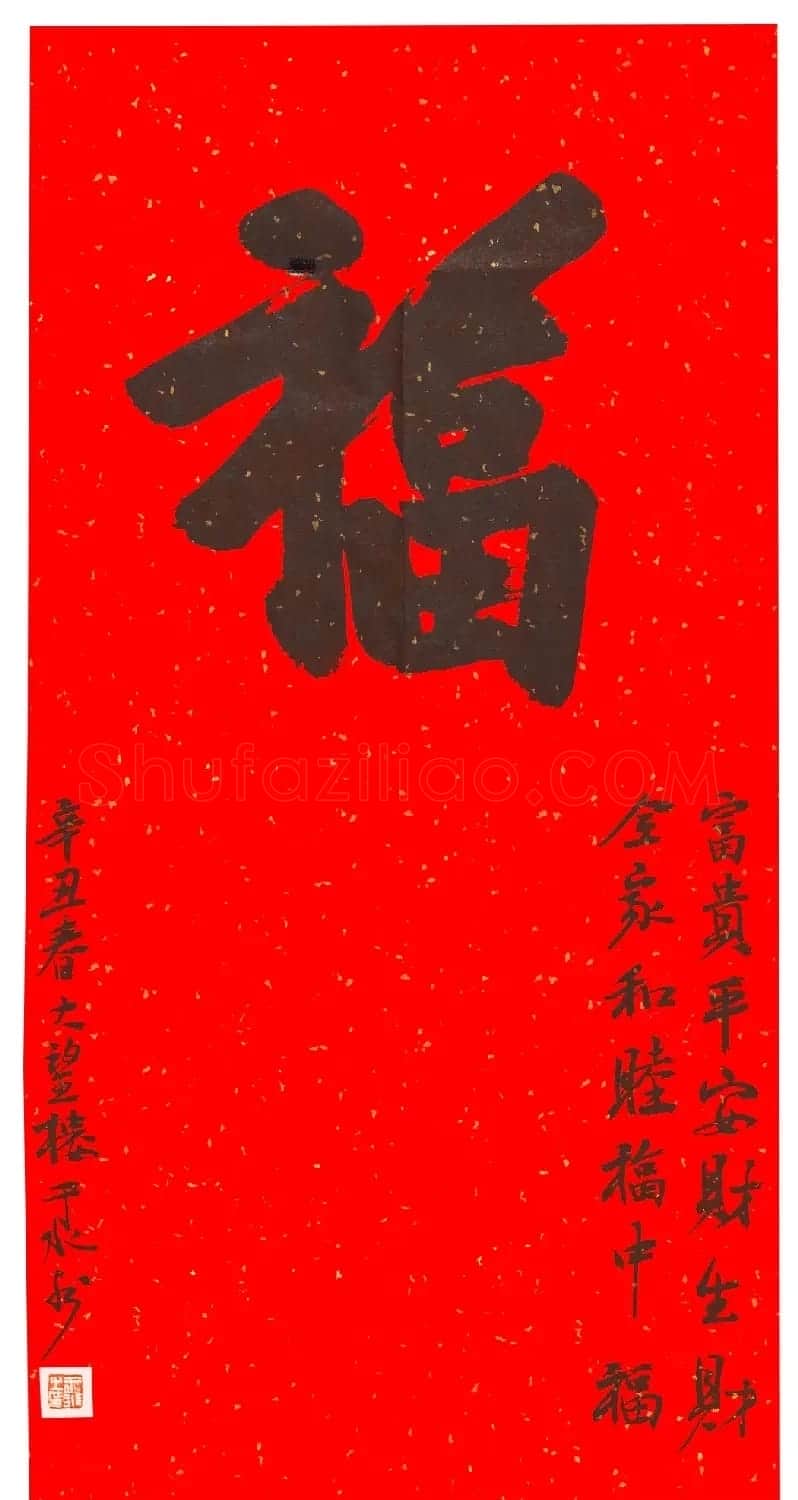 福
富貴平安財生財
全家和睦福中福
辛丑春大望楼于水书
Shufaziliao.COM